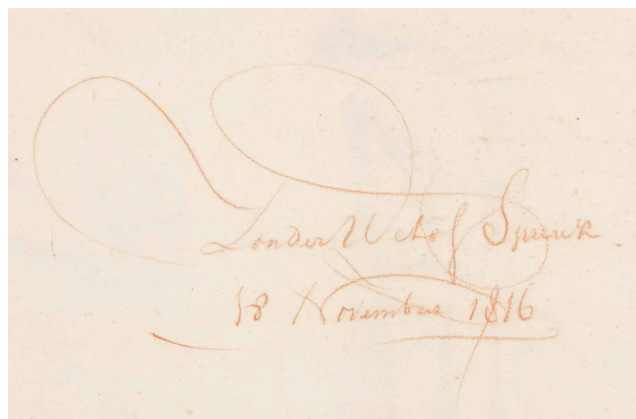 Sonder Uchof Spreuk.
18 November 1816